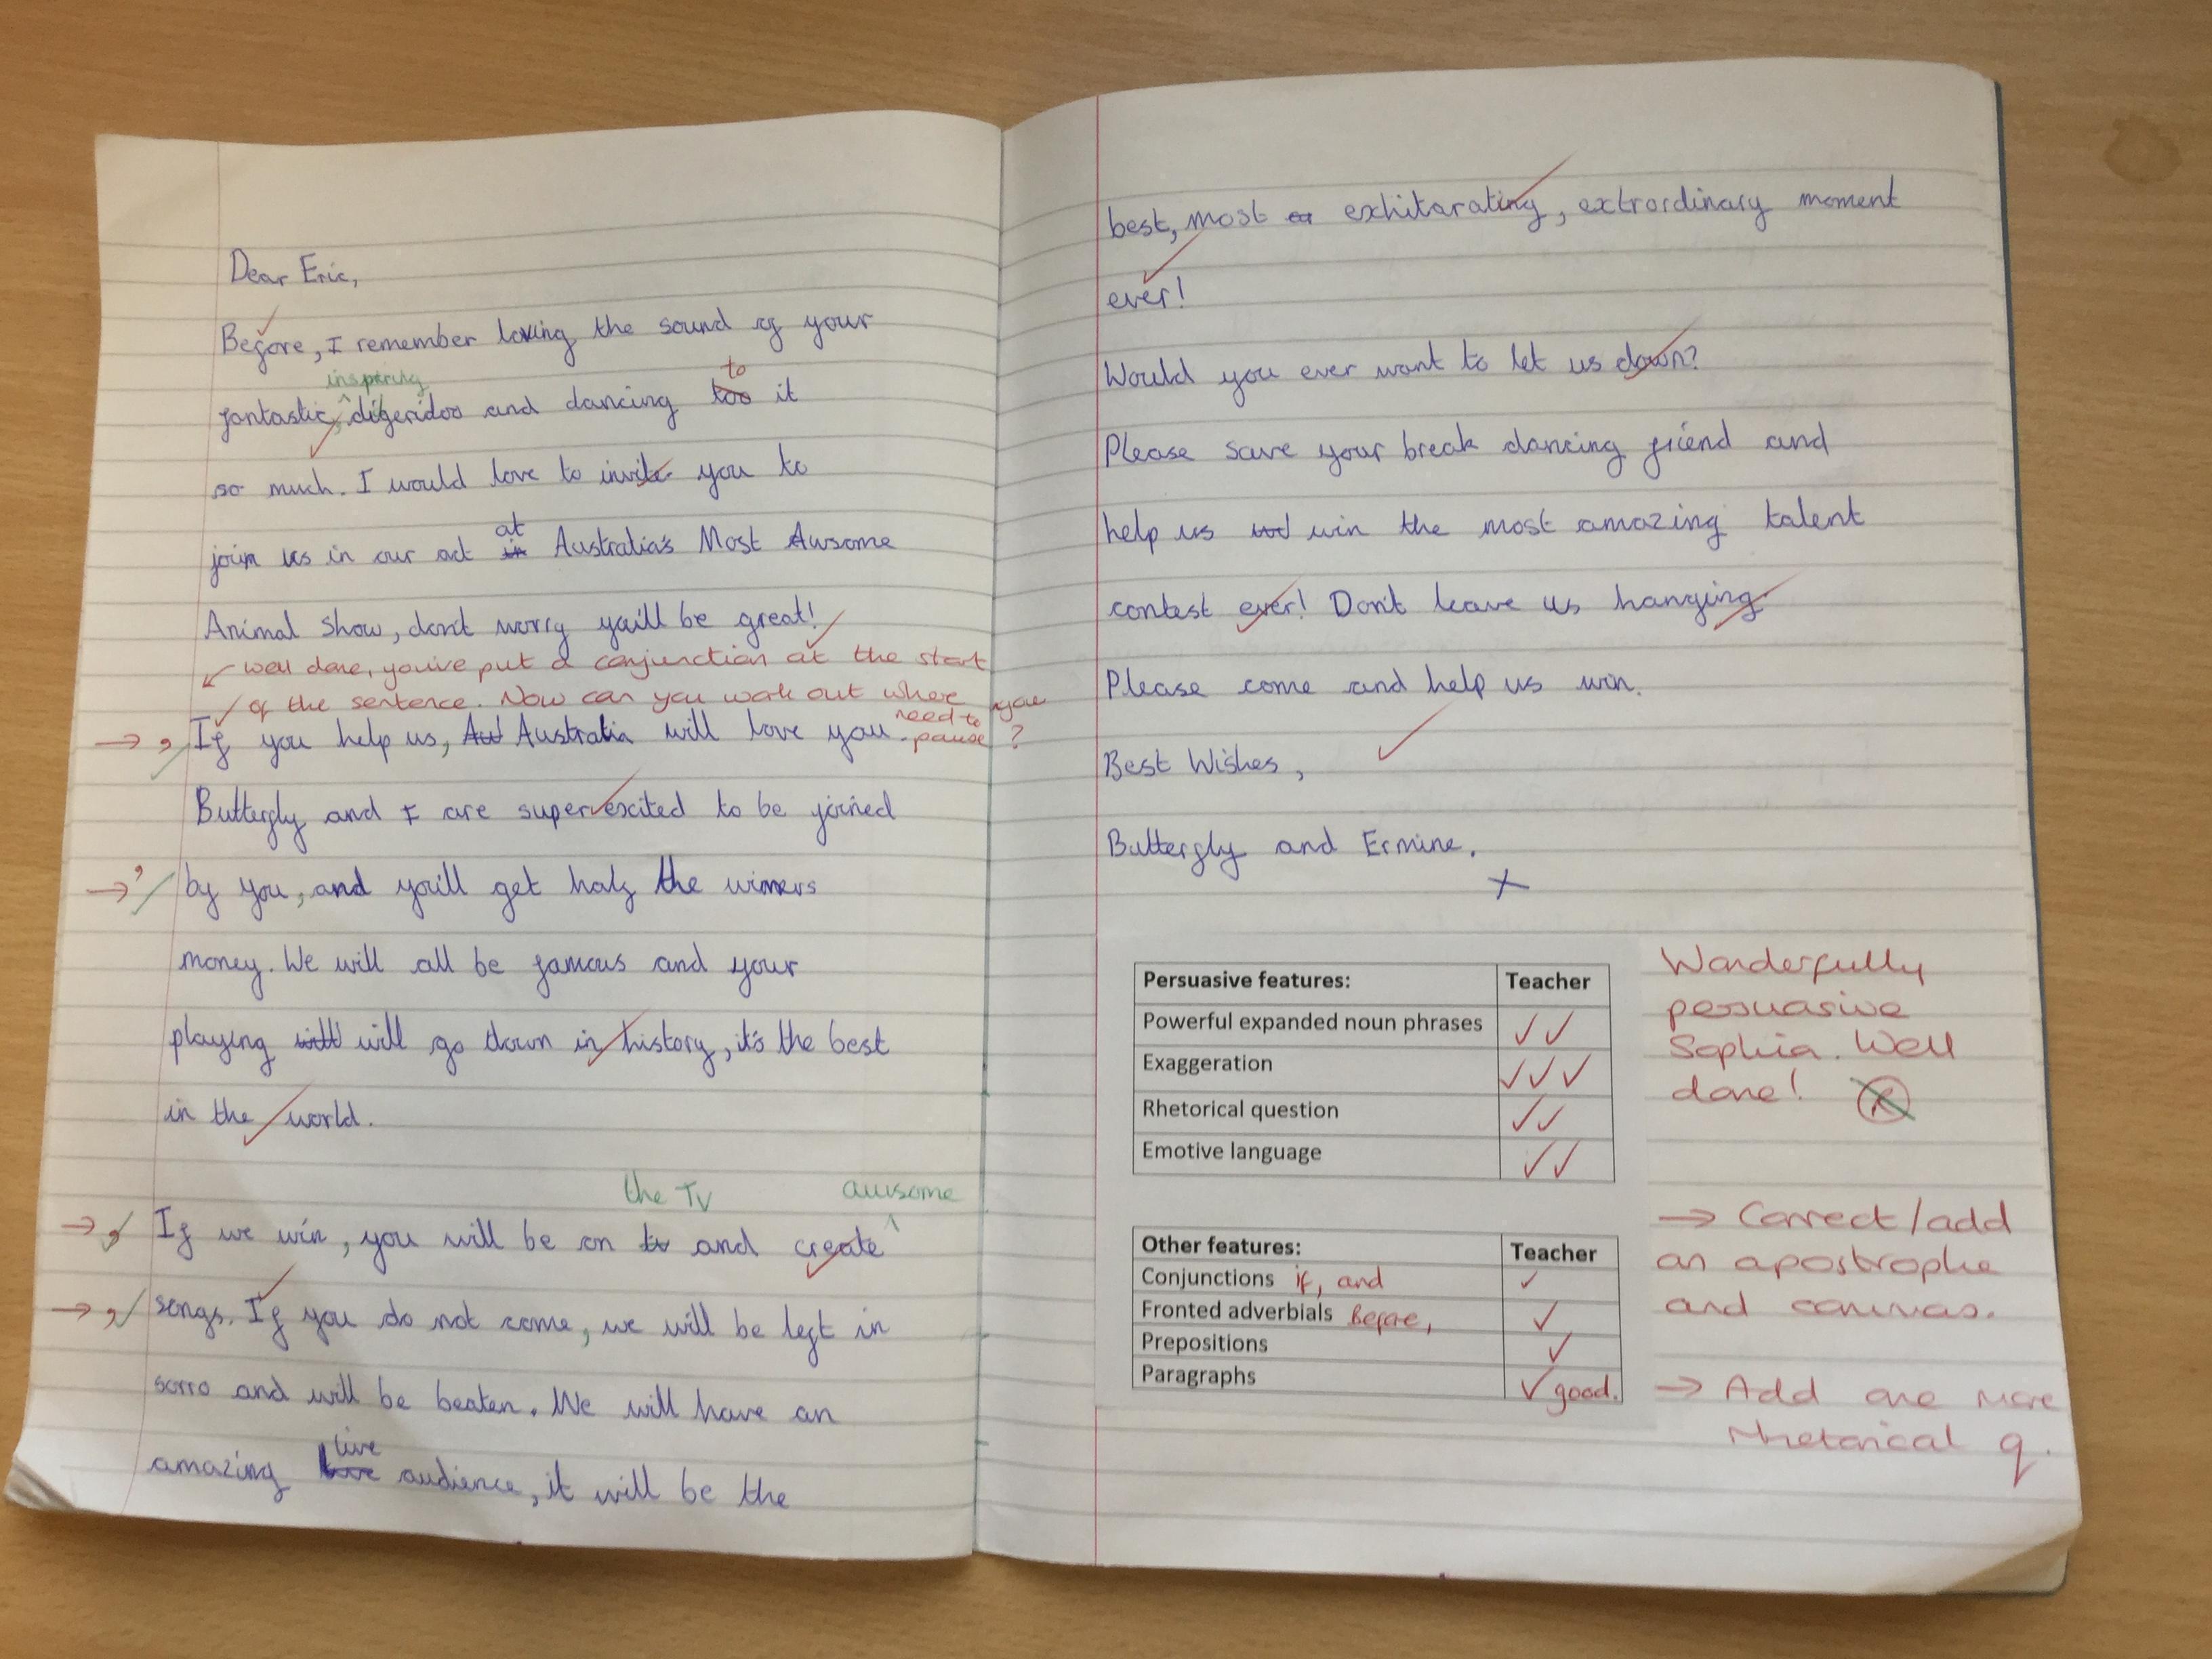 Dear Eric,
Before, I remember loving the sound of your
inspering
to
fantastic, digeridoo and dancing too it
so much. I would love to invite you to
at
join us in our act in Australia's Most Awsome
Animal Show, don't worry you'll be great!
well done, you've put a conjunction at the start
of the sentence. Now can you work out where you
need to
pause ?
→ , If you help us, Aut Australia will love you.
Butterfly and I are super excited to be joined
→ ' by you, and you'll get half the winners
money. We will all be famous and your
playing will will go down in history, it's the best
in the world.
the TV awsome
→ , If we win, you will be on tv and create
→ , songs. If you do not come, we will be left in
sorro and will be beaten. We will have an
live
amazing love audience, it will be the
best, most exhitarating, extrordinary moment
ever!
Would you ever want to let us down?
Please save your break dancing friend and
help us win the most amazing talent
contest ever! Don't leave us hanging.
Please come and help us win.
Best Wishes,
Butterfly and Ermine.
x
Persuasive features: Teacher
Powerful expanded noun phrases ✓✓
Exaggeration ✓✓✓
Rhetorical question ✓✓
Emotive language ✓✓
Wonderfully
persuasive
Sophia. Well
done!
Other features: Teacher
Conjunctions if, and ✓
Fronted adverbials Before, ✓
Prepositions ✓
Paragraphs ✓ good.
→ Correct/add
an apostrophe
and commas.
→ Add one more
rhetorical q.